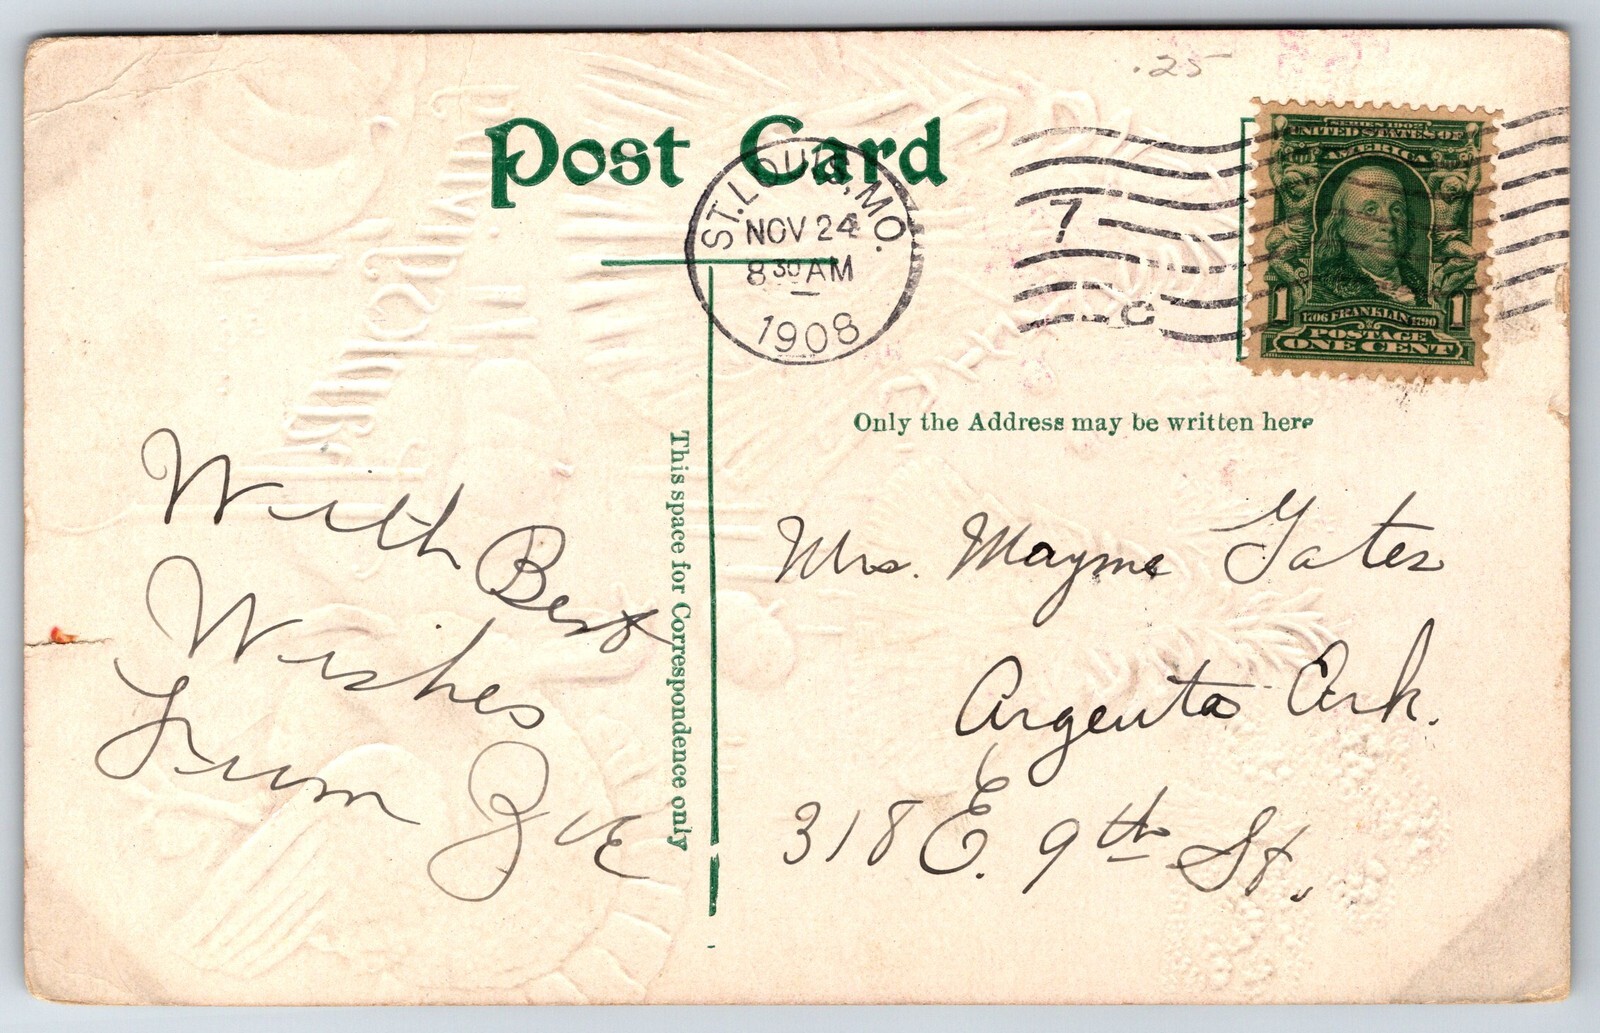 .25
Post Card
ST. LOUIS, MO.
NOV 24
8 30 AM
1908
7
C
SERIES 1902
UNITED STATES OF
AMERICA
1 1
1706 FRANKLIN 1790
POSTAGE
ONE CENT
Only the Address may be written here
This space for Correspondence only
With Best
Wishes
From
Mrs. Mayme Gates
Argenta Ark.
318 E. 9th St.